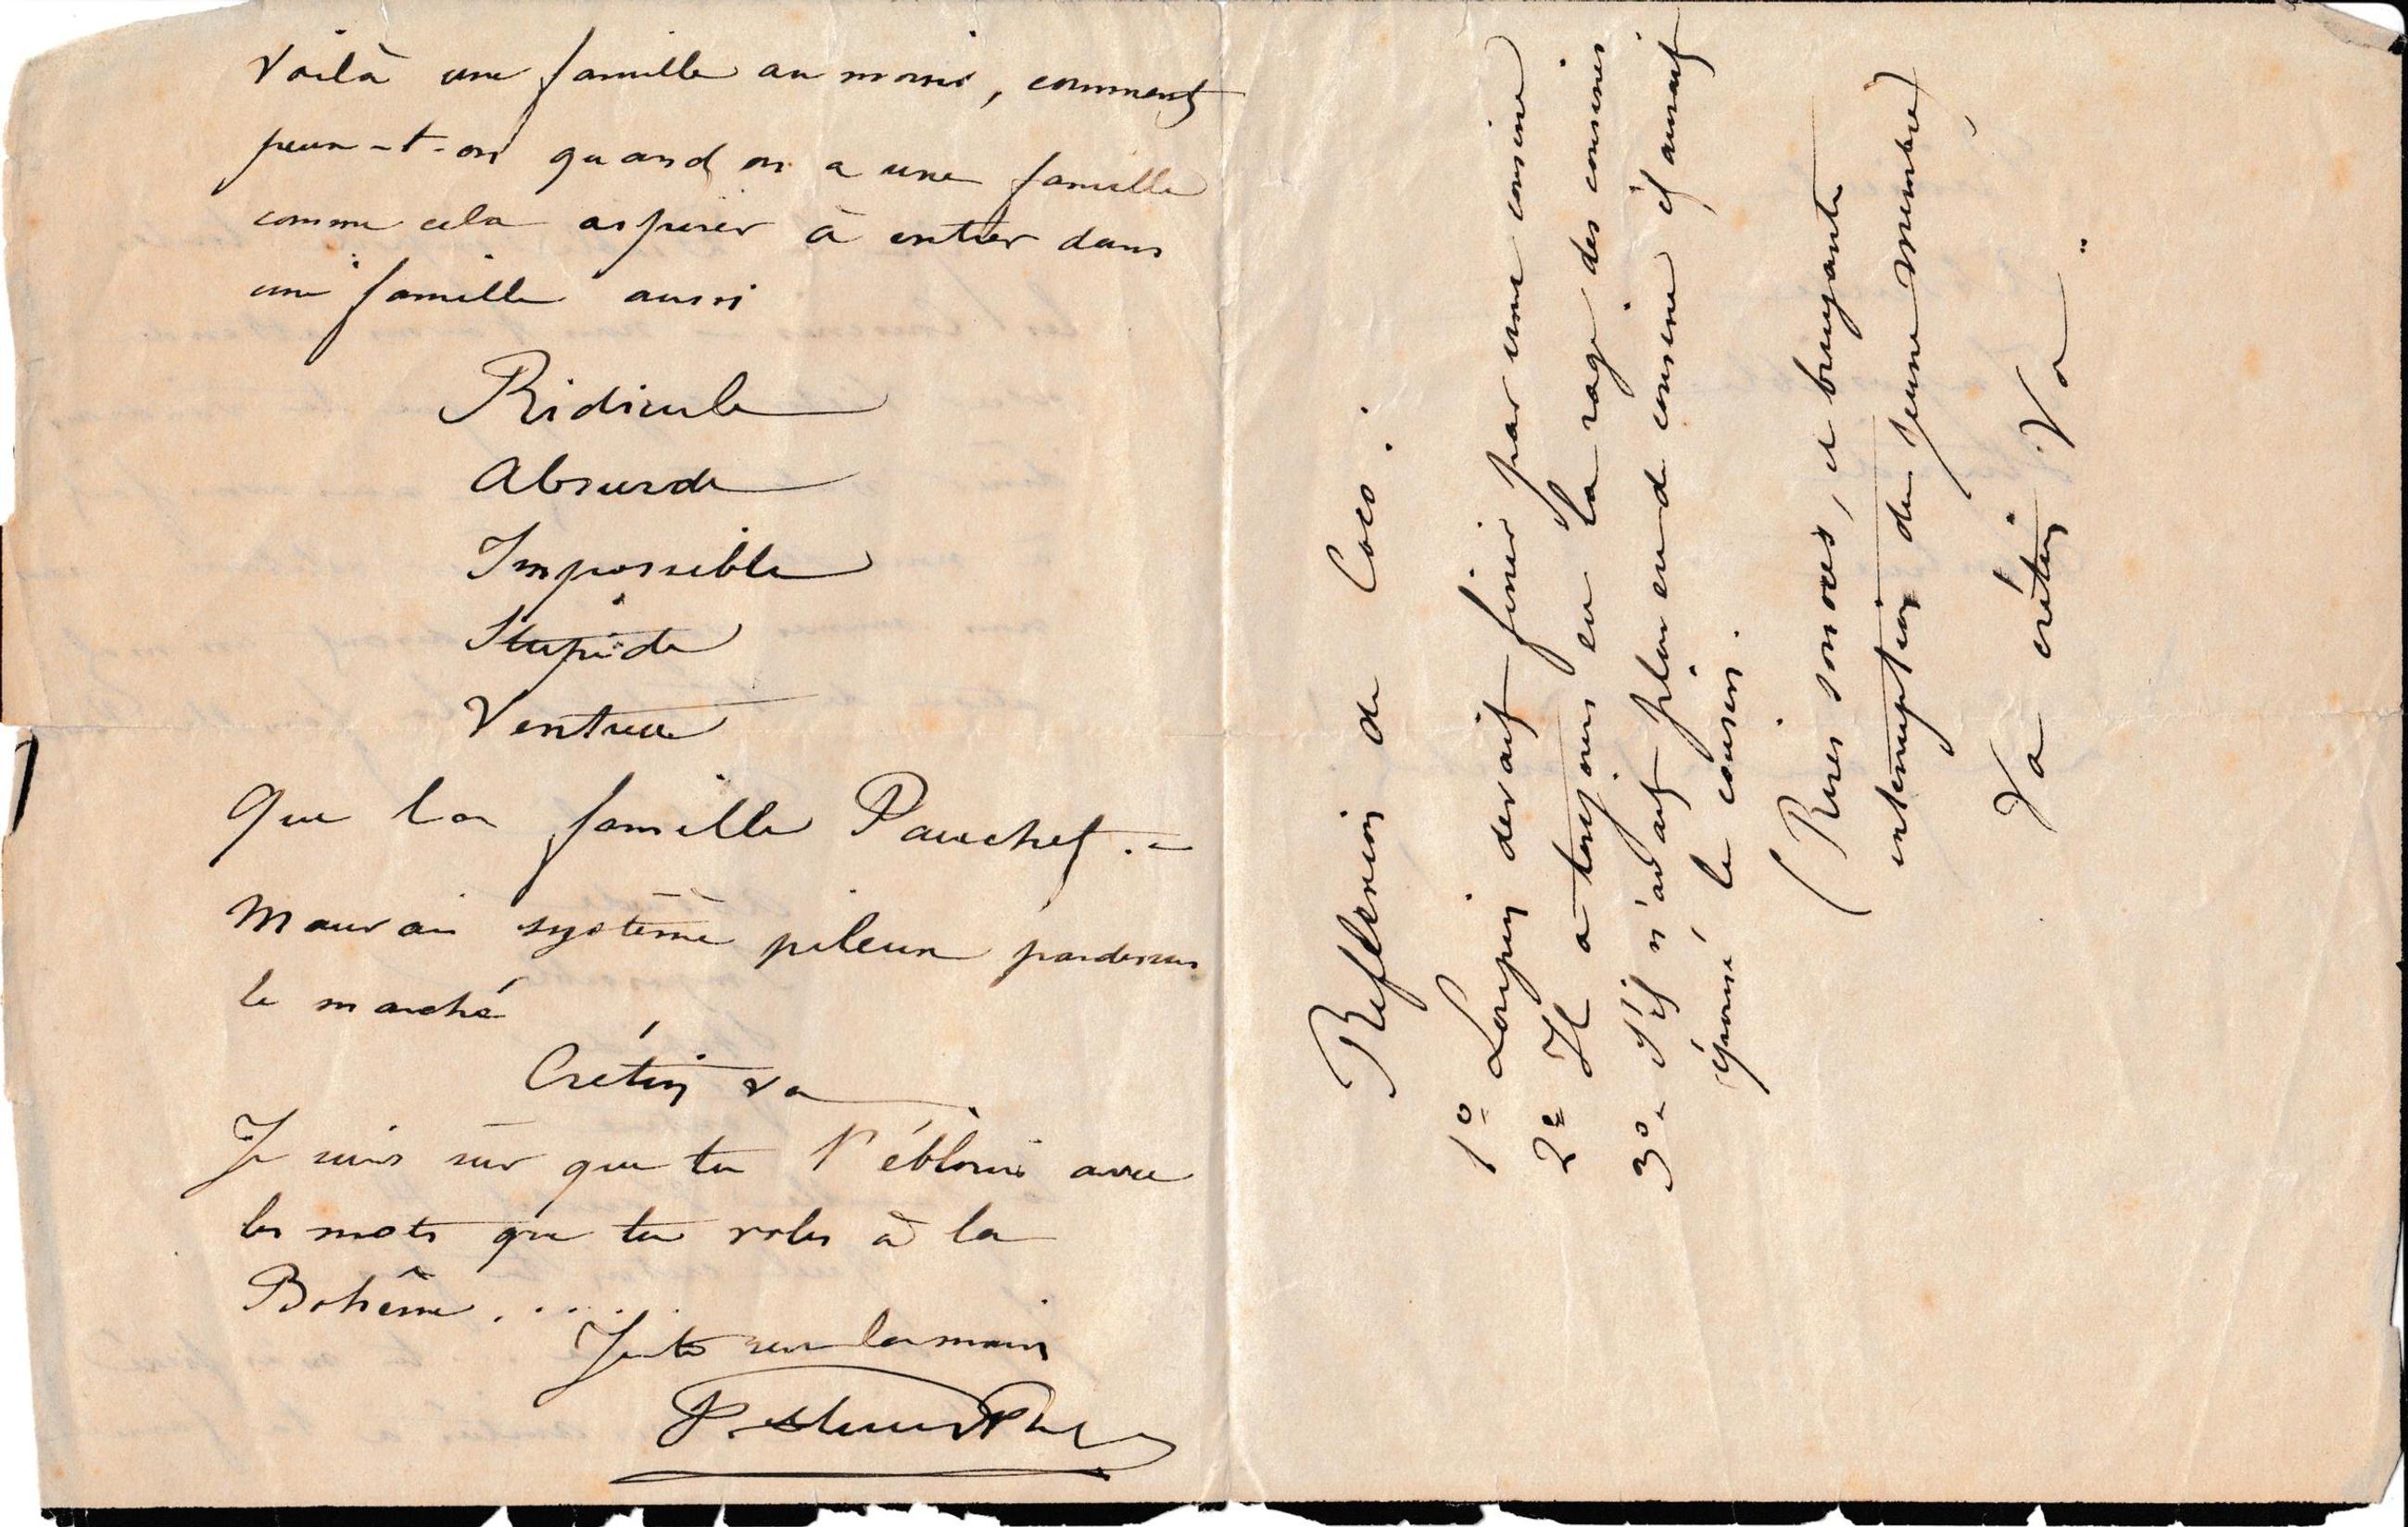 Voilà une famille au moins, comment
peux-t-on quand on a une famille
comme cela aspirer à entrer dans
une famille aussi
Ridicule
Absurde
Impossible
Stupide
Ventrue
Que la famille Pauchet.=
Mauvais système pileux pardessus
le marché
Crétin va
Je suis sûr que tu l'éblouis avec
les mots que tu voles à la
Bohême.....
Je te serre la main
Reflexion de Coco :
1º Loupin devait finir par une cousine
2º Il a toujours eu la rage des cousines
3º- S'il n'avait plus eu de cousine il aurait
épousé le cousin.
(Rires sonores, et bruyante
interruption du jeune membre)
Va crétin Va "